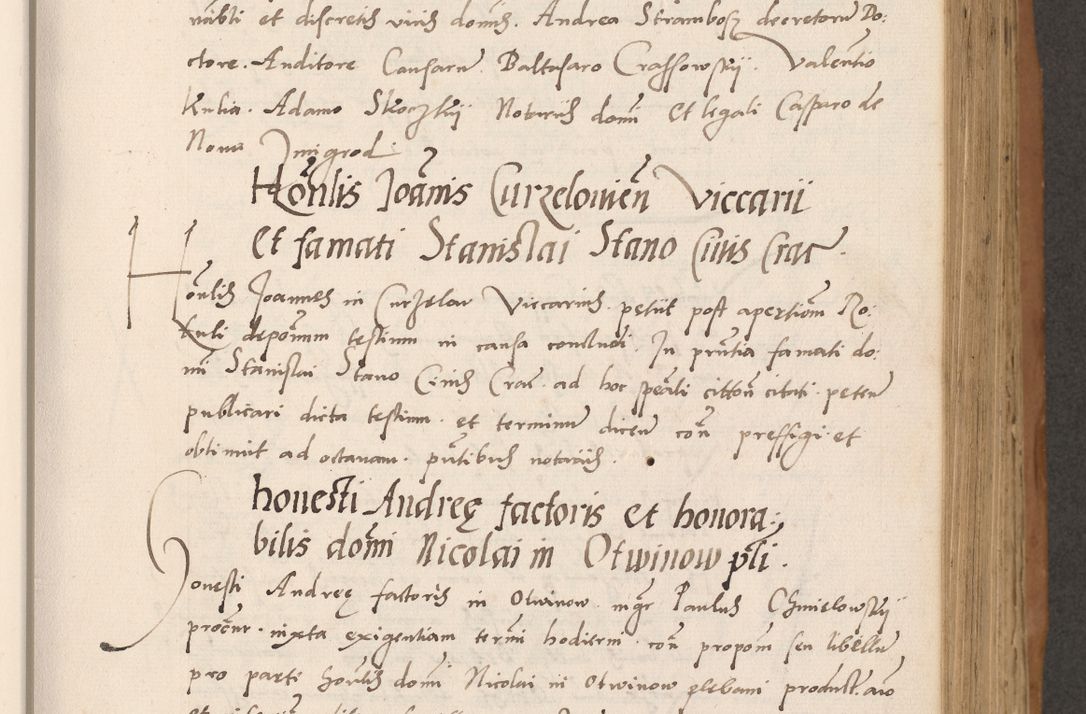 nabli et discretis viris dominis. Andrea Strambosz decretorum Do:
ctore. Auditore Causarum. Baltasaro Crassowskij. Valentio
Kulia. Adamo Skoczkij Notariis domi Et legali Casparo de
Nova Imigrod
Honlis Joannis Curzelovien Viccarii
Et famati Stanislai Stano Civis Crac.
Honlis Joannes in Curzelow Viccarius. petiit post apertiom Ro:
tuli deponum testium in causa concludi. In pntia famati do:
mi Stanislai Stano Civis Crac. ad hoc speali citton citati. peten
publicari dicta testium. et terminum dicen con preffigi. et
obtinuit ad octavam. pntibus notariis.
honesti Andreę factoris et honora:
bilis domi Nicolai in Otwinow pti.
Honesti Andreę factoris in Otwinow. mgr Paulus Chmielowskij
procur. iuxta exigentiam termi hodierni. con propom seu libellum
pro parti honlis domi Nicolai in Otwinow plebani product. aio